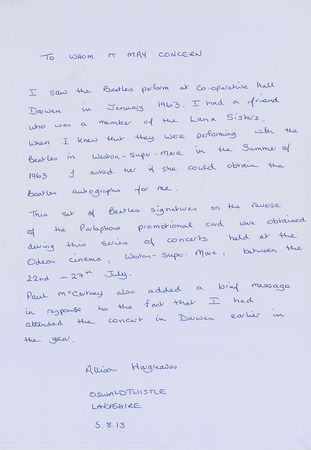 TO WHOM IT MAY CONCERN
I saw the Beatles perform at Co-operative Hall
Darwen in January 1963. I had a friend
who was a member of the Lana Sisters.
When I knew that they were performing with the
Beatles in Weston-Super-Mare in the Summer of
1963 I asked her if she could obtain the
Beatles autographs for me.
This set of Beatles signatures on the reverse
of the Parlophone promotional card were obtained
during this series of concerts held at the
Odeon cinema, Weston-Super-Mare, between the
22nd - 27th July.
Paul McCartney also added a brief message
in response to the fact that I had
attended the concert in Darwen earlier in
the year.
Allison Hargreaves
OSWALDTWISTLE
LANCASHIRE
5.8.13